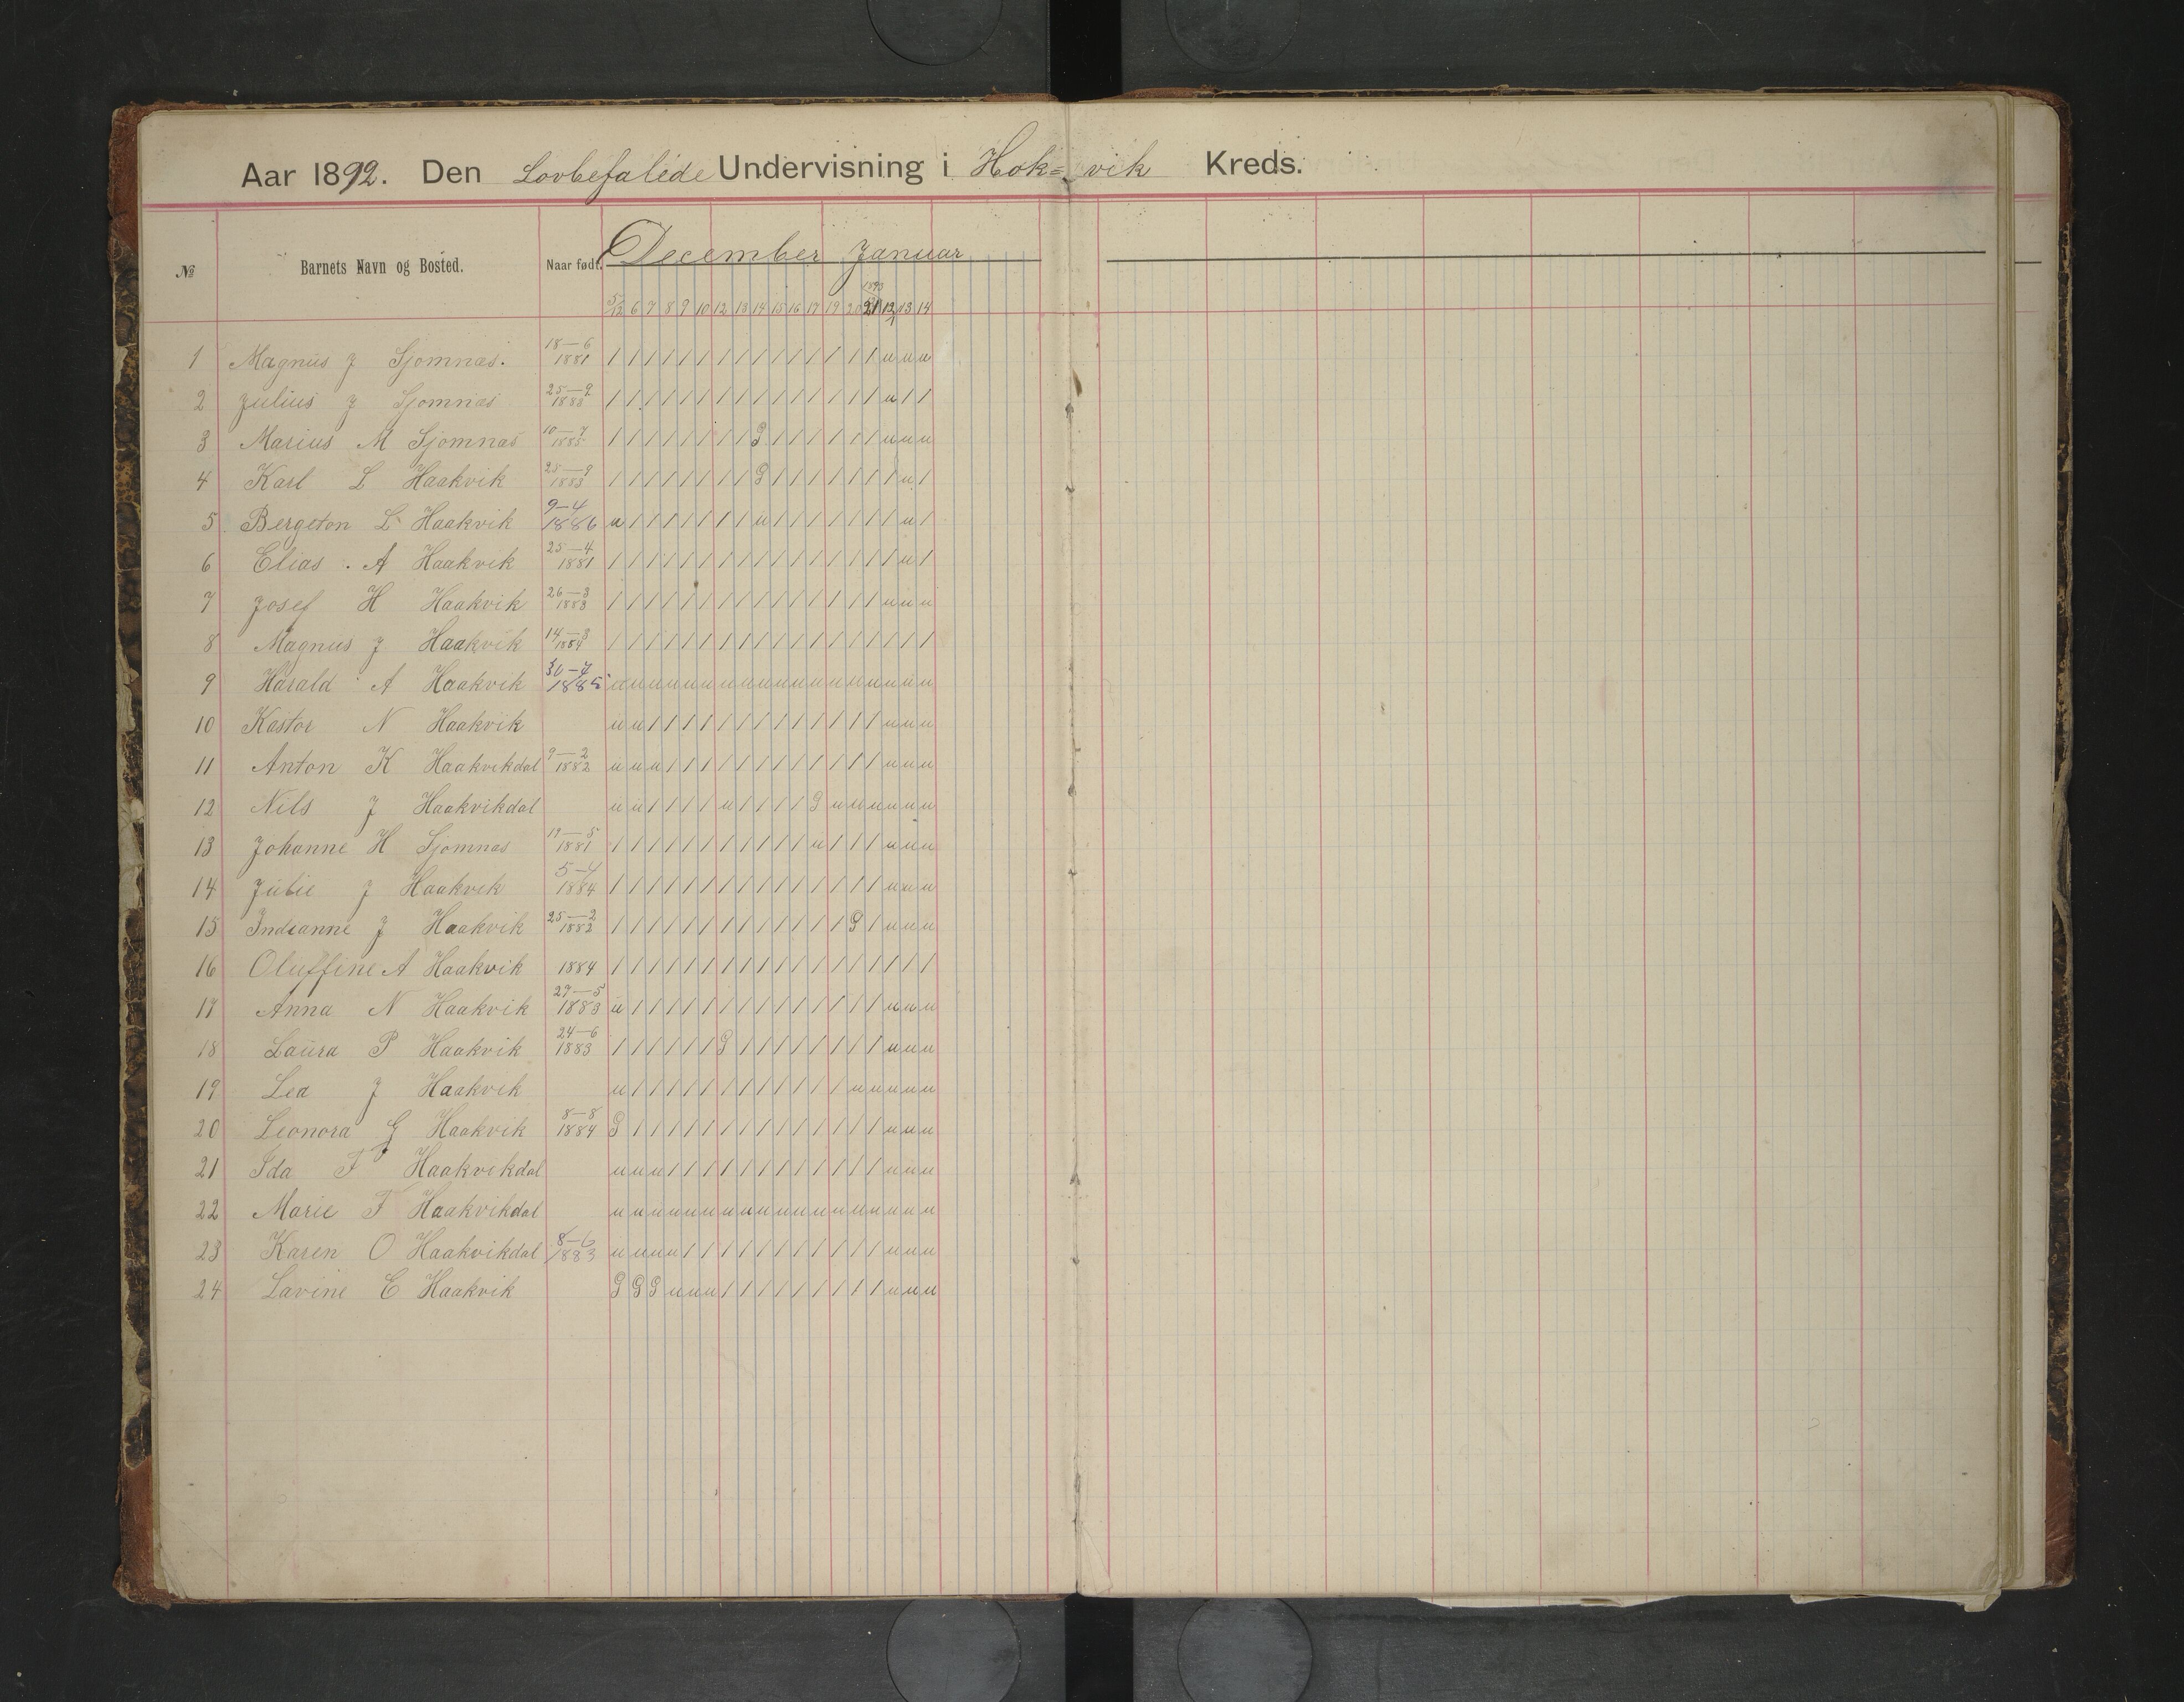 Aar 1892. Den Lovbefalede Undervisning i Hok= vik Kreds.
№ Barnets Navn og Bosted. Naar født. December Januar
1893
5/12 6 7 8 9 10 12 13 14 15 16 17 19 20 21 12/1 13 14
1 Magnus J Sjomnas. 18-6 1881 / / / / / / / / / / / / / / / u u u
2 Julius J Sjomnas 25-9 1883 / / / / / / / / / / / / / / / u / /
3 Marius M Sjomnas 10-7 1885 / / / / / / / / G / / / / / / u u u
4 Karl L Haakvik 25-9 1883 / / / / / / / / G / / / / / / / u /
5 Bergeton L Haakvik 9-4 1886 u / / / / / / / u / / / / / / / u /
6 Elias A Haakvik 25-4 1881 / / / / / / / / / / / / / / / / u /
7 Josef H Haakvik 26-3 1883 / / / / / / / / / / / / / / / u u u
8 Magnus J Haakvik 14-3 1884 / / / / / / / / / / / / / / / / / /
9 Harald A Haakvik 30-7 1885 u u u u u u u u u u u u u u u u u u
10 Kastor N Haakvik u u / / / / / / / / / / / / / u u u
11 Anton K Haakvikdal 9-2 1882 u u u / / / / / / / / / / / / u u u
12 Nils J Haakvikdal u u / / / / u / / / / G u u u u u u
13 Johanne H Sjomnas 19-5 1881 / / / / / / / / / / / u / / / u u u
14 Julie J Haakvik 5-4 1884 / / / / / / / / / / / / / / / u u u
15 Indianne J Haakvik 25-2 1882 / / / / / / / / / / / / / G / u u u
16 Oluffine A Haakvik 1884 / / / / / / / / / / / / / / / / / /
17 Anna N Haakvik 29-5 1883 u / / / / / / / / / / / / / / u u u
18 Laura P Haakvik 24-6 1883 / / / / / / G / / / / / / / / u u u
19 Lea J Haakvik u / / / / / / / / / / / / u u u u u
20 Leonora G Haakvik 8-8 1884 G / / / / / / / / / / / / / / u u u
21 Ida F Haakvikdal u u u / / / / / / / / / / / / u u u
22 Marie F Haakvikdal u u u u u u u u u u u u u u u u u u
23 Karen O Haakvikdal 8-6 1883 u u u u / / / / / / / / / / / u u u
24 Lavine E Haakvik G G G u u u / / / / / / / / / u u u